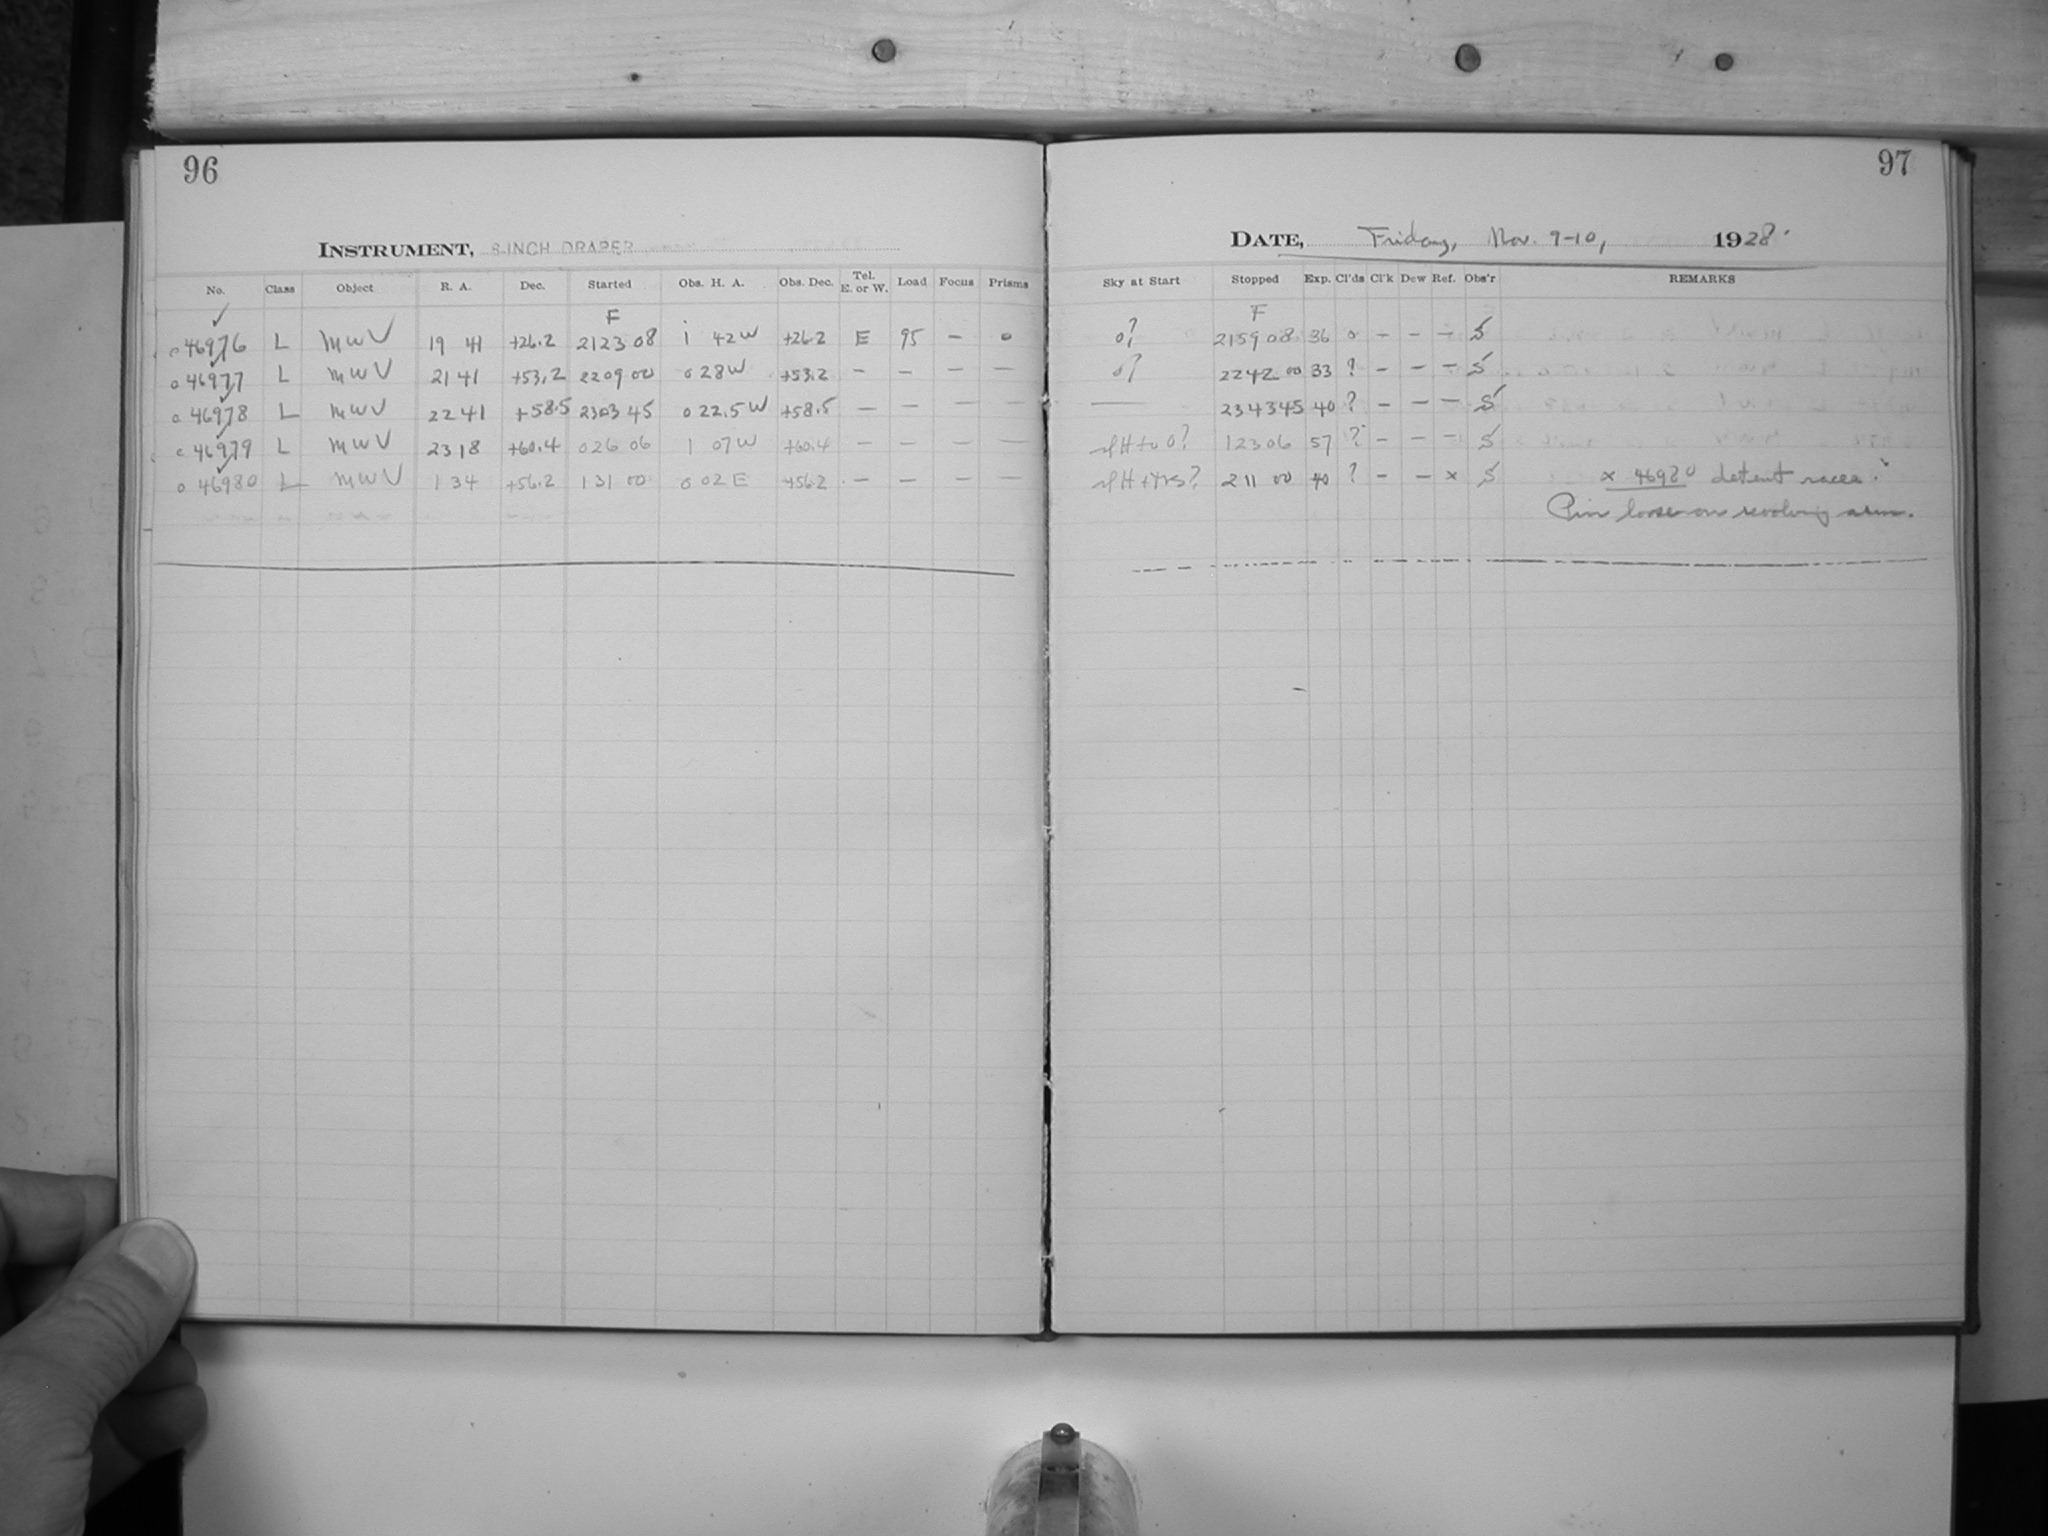 96
INSTRUMENT, 8-INCH DRAPER
No. Class Object R. A. Dec. Started Obs. H. A. Obs. Dec. Tel. E. or W. Load Focus Prisms
F
o 46976 L MWV 19 41 +26.2 21 23 08 1 42 W +26.2 E 95 – o
o 46977 L MWV 21 41 +53.2 22 09 00 0 28 W +53.2 – – – –
o 46978 L MWV 22 41 +58.5 23 03 45 0 22.5 W +58.5 – – – –
o 46979 L MWV 23 18 +60.4 0 26 06 1 07 W +60.4 – – – –
o 46980 L MWV 1 34 +56.2 1 31 00 0 02 E +56.2 – – – –
97
DATE, Friday, Nov. 9-10, 1928.
Sky at Start Stopped Exp. Cl'ds Cl'k Dew Ref. Obs'r REMARKS
F
o? 21 59 08 36 o – – – S
o? 22 42 00 33 ? – – – S
— 23 43 45 40 ? – – – S
H to o? 1 23 06 57 ? – – – S
H + ? 2 11 00 40 ? – – x S x 46980 detent races.
Pin loose on revolving arm.